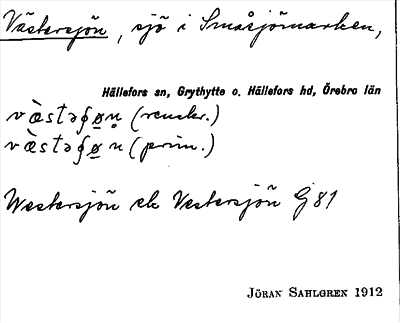 Västersjön, sjö i Småsjömarken,
Hällefors sn, Grythytte o. Hällefors hd, Örebro län
væ̀stəʃø̱n̥ (rencler.)
væ̀stəʃø̱n (prim.)
Westersjön ek Vestersjön G 81
JÖRAN SAHLGREN 1912